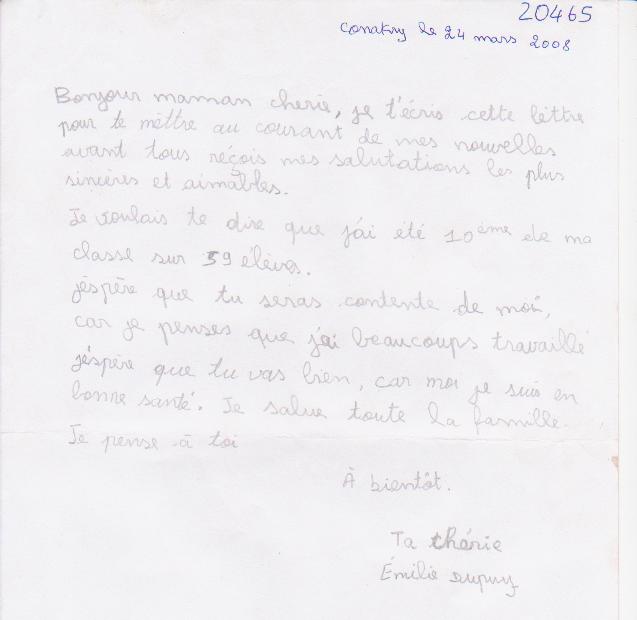 20465
Conakry le 24 mars 2008
Bonjour maman cherie, je t'écris cette léttre
pour te méttre au courant de mes nouvelles
avant tous réçois mes salutations les plus
sincères et aimables.
Je voulais te dire que j'ai été 10ème de ma
classe sur 59 élèves.
j'éspère que tu seras contente de moi,
car je penses que j'ai beaucoups travaillé
j'éspère que tu vas bien, car moi je suis en
bonne santé. Je salue toute la famille.
Je pense à toi
À bientôt.
Ta chérie
Émilie Dupuy